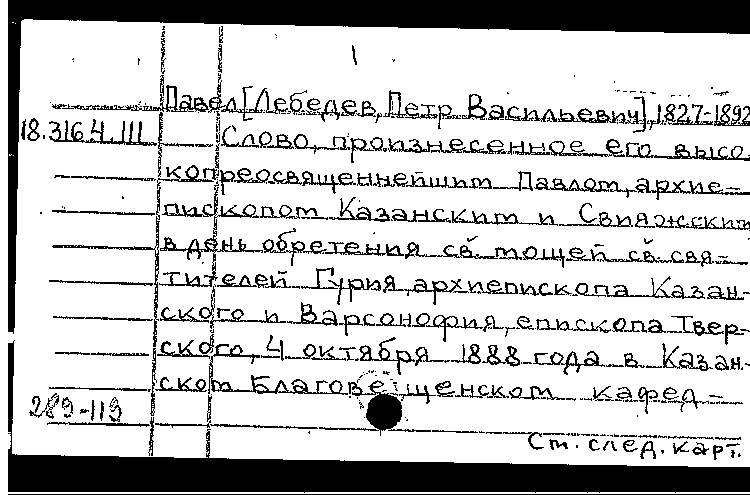 1
Павел [Лебедев, Петр Васильевич], 1827-1892
18.316.4.111
Слово, произнесенное его высо-
копреосвященнейшим Павлом, архие-
пископом Казанским и Свияжским
в день обретения св. мощей св. свя-
тителей Гурия, архиепископа Казан-
ского и Варсонофия, епископа Твер-
ского, 4 октября 1888 года в Казан-
ском Благовещенском кафед-
289-119
См. след. карт.